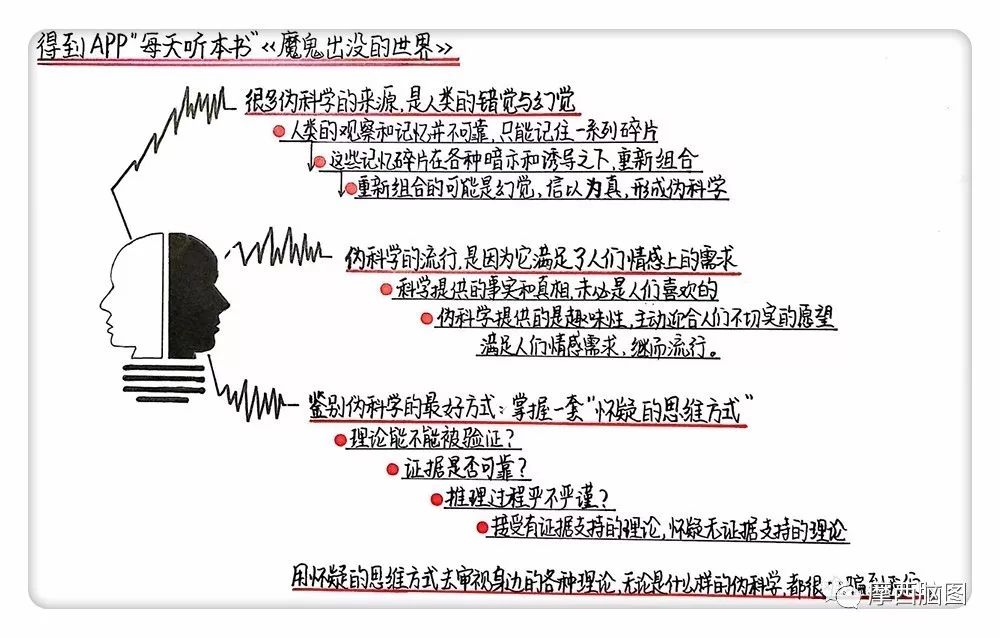 得到APP“每天听本书”《魔鬼出没的世界》
很多伪科学的来源,是人类的错觉与幻觉
人类的观察和记忆并不可靠,只能记住一系列碎片
这些记忆碎片在各种暗示和诱导之下,重新组合
重新组合的可能是幻觉,信以为真,形成伪科学
伪科学的流行,是因为它满足了人们情感上的需求
科学提供的事实和真相,未必是人们喜欢的
伪科学提供的是趣味性,主动迎合人们不切实的愿望
满足人们情感需求,继而流行。
鉴别伪科学的最好方式:掌握一套“怀疑的思维方式”
理论能不能被验证?
证据是否可靠?
推理过程严不严谨?
接受有证据支持的理论,怀疑无证据支持的理论
用怀疑的思维方式去审视身边的各种理论,无论是什么样的伪科学,都很
摩西脑图